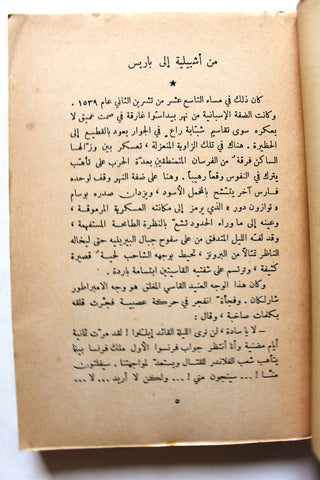 من أشبيلية إلى باريس
★
كان ذلك في مساء التاسع عشر من تشرين الثاني عام ١٥٣٩.
وكانت الضفة الإسبانية من نهر بيداسئوا غارقة في صمت عميق لا
يعكره سوى تقاسيم شبّابة راع في الجوار يعود بالقطيع إلى
الحظيرة. في هاتيك الزاوية المنعزلة، تعسكر بين وزّالها
الساكن فرقة من الفرسان المتمنطقين بعدّة الحرب على تأهب
يترك في النفوس وقعاً رهيباً. وعلى ضفة النهر وقف لوحده
فارس آخر يتشح بالمخمل الأسود، ويزدان صدره بوسام
« توازون دور » الذي يرمز إلى مكانته العسكرية المرموقة،
وعينه إلى ما وراء الحدود تشع بالنظرة الطامحة المستفهمة،
وقد لفه الليل المتدفق من على سفوح جبال البيرينيه حتى ليخاله
الناظر تمثالاً من البرونز، ويواجه وجهه الشاحب لحية قصيرة
كثيفة، وترتسم على شفتيه القاسيتين ابتسامة باردة.
وكان هذا الوجه العنيد القاسي المقلق هو وجه الامبراطور
شارلكان. وفجأة انفجر في حركة عصبية فجّرت قلقه
بكلمات صاخبة، وقال:
— لا يا سادة، لن نرى الليلة القائد إيلخوا! لقد مرّت ثمانية
أيام مضنية وأنا أنتظر جواب فرنسوا الأول ملك فرنسا بينما
يتأهب شعب الفلاندر للقتال ويستعدّ لمواجهتنا. سيفلتون
منّا!... سينجون مني!... ولكن لا أريد... لا...
٥